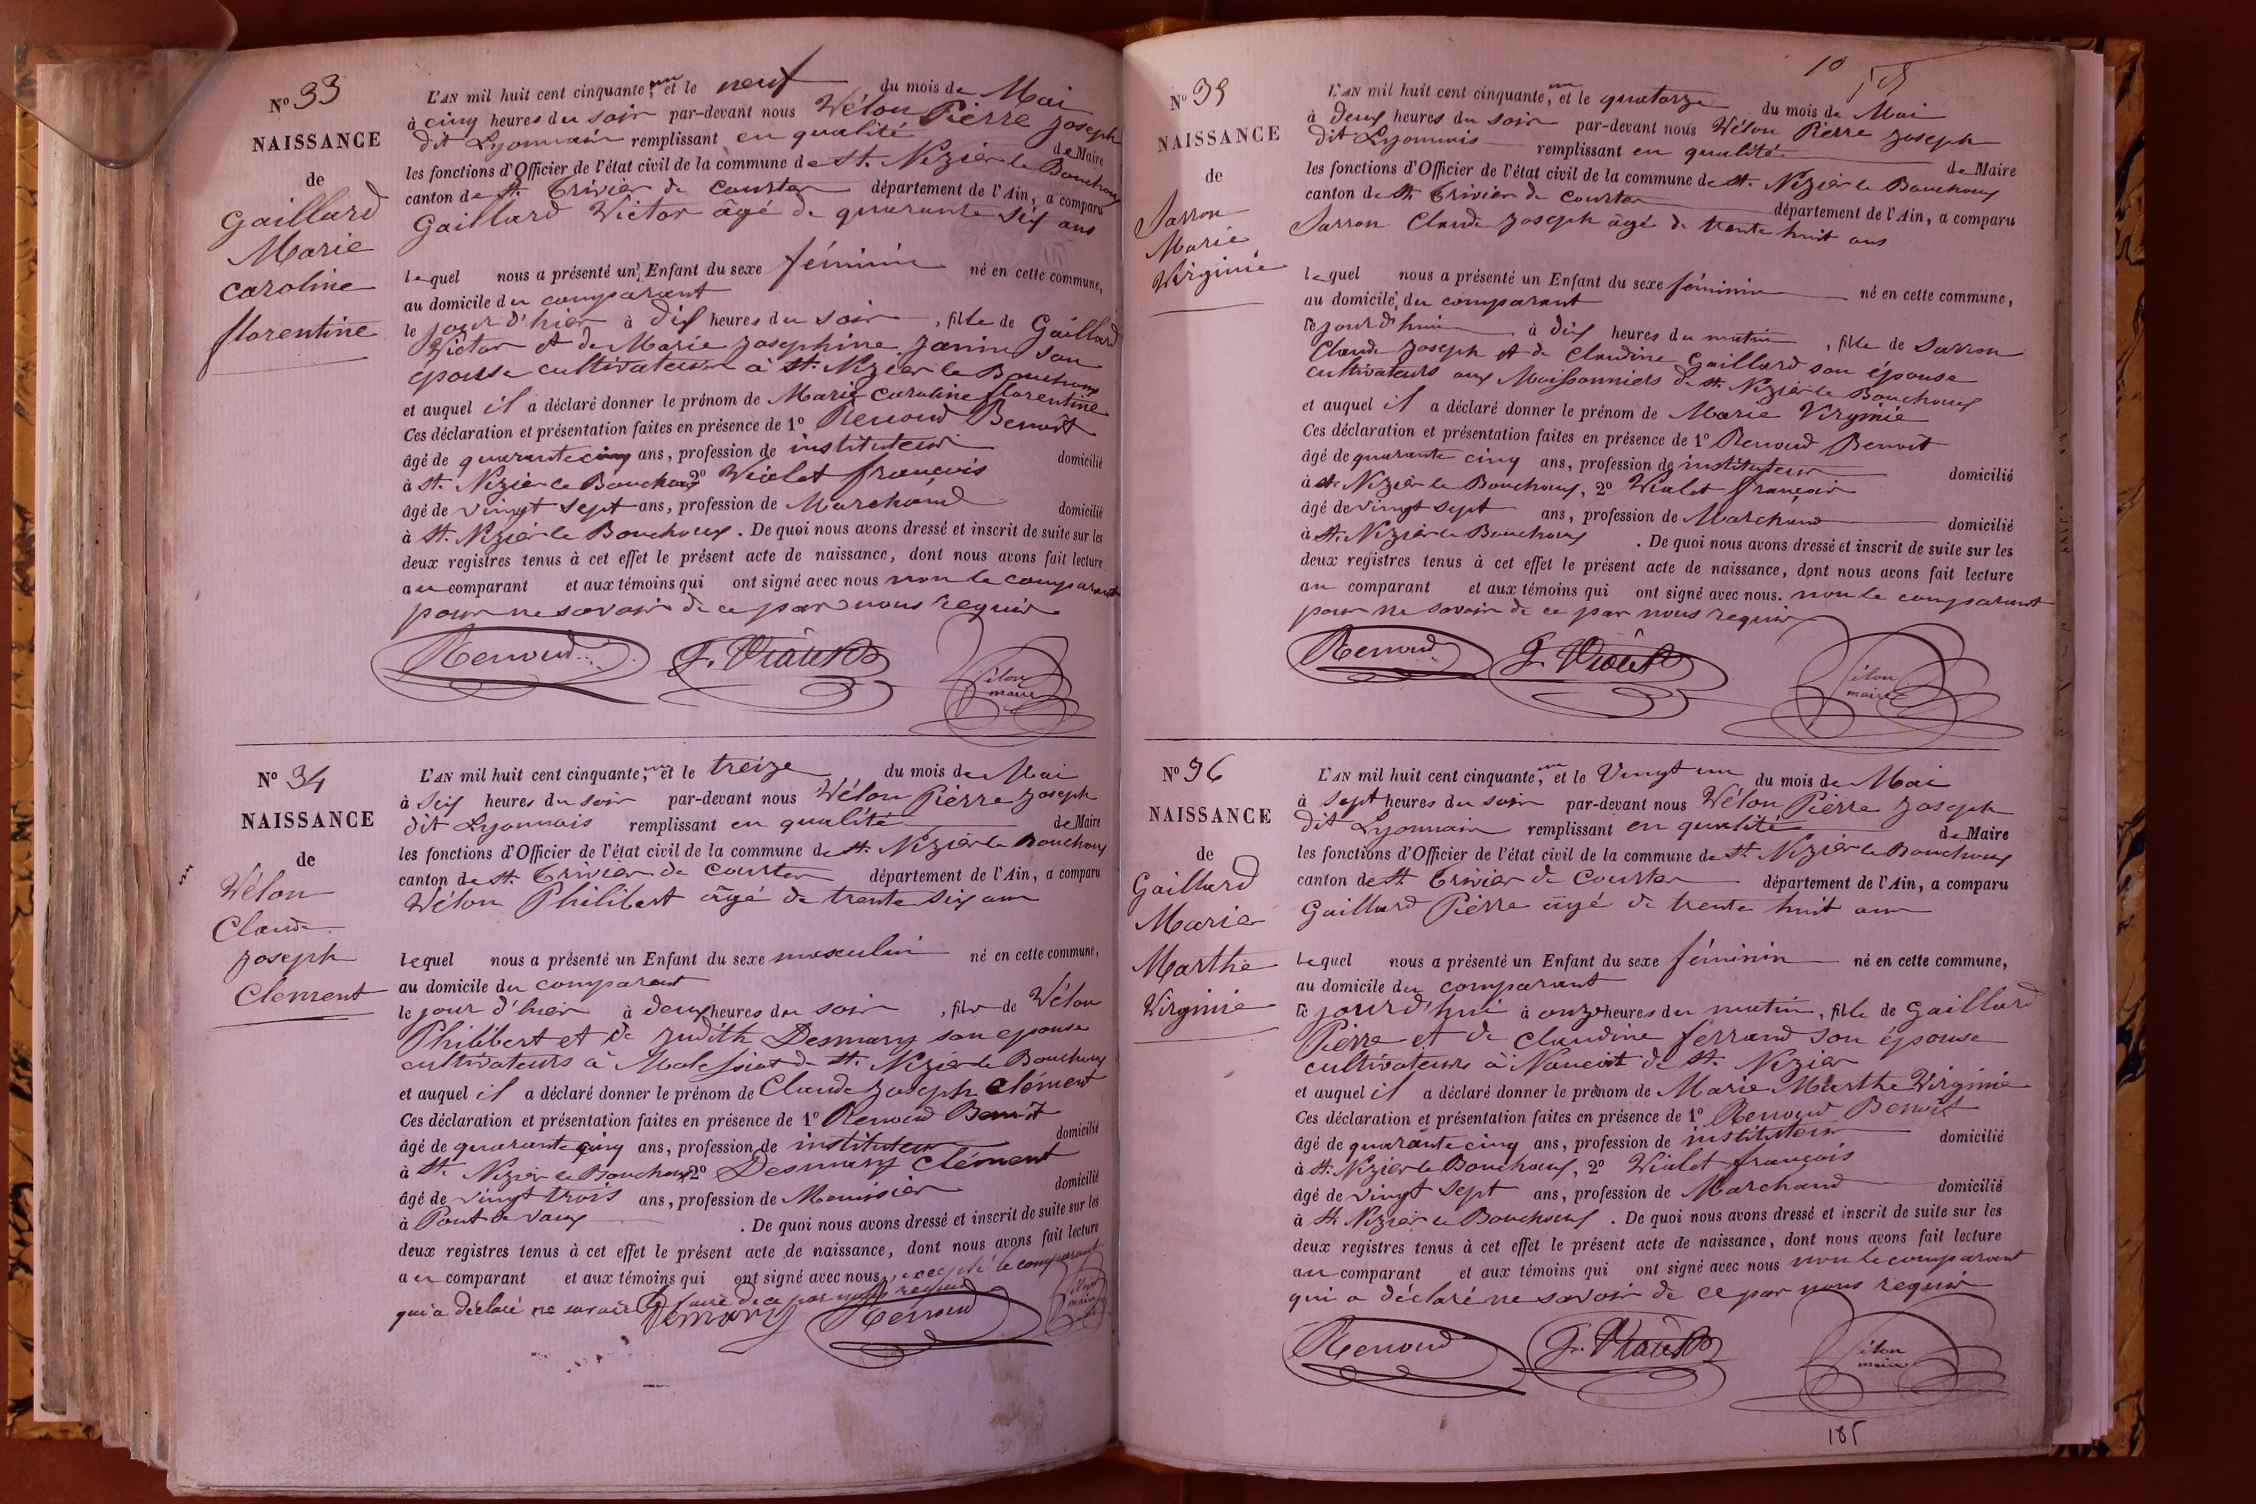 N° 33
NAISSANCE
de
Gaillard
Marie
Caroline
florentine
L'AN mil huit cent cinquante, un et le neuf du mois de Mai
à cinq heures du soir par-devant nous Vélon Pierre Joseph
dit Lyonnais remplissant en qualité de Maire
les fonctions d'Officier de l'état civil de la commune de St. Nizier le Bouchoux
canton de St. Trivier de Courtes département de l'Ain, a comparu
Gaillard Victor âgé de quarante six ans
lequel nous a présenté un Enfant du sexe féminin né en cette commune,
au domicile du comparant
le jour d'hier à dix heures du soir, fille de Gaillard
Victor et de Marie Josephine Janin son
épouse cultivateurs à St. Nizier le Bouchoux
et auquel il a déclaré donner le prénom de Marie Caroline florentine
Ces déclaration et présentation faites en présence de 1° Renoud Benoît
âgé de quarante cinq ans, profession de instituteur domicilié
à St. Nizier le Bouchoux 2° Violet françois
âgé de vingt sept ans, profession de Marchand domicilié
à St. Nizier le Bouchoux. De quoi nous avons dressé et inscrit de suite sur les
deux registres tenus à cet effet le présent acte de naissance, dont nous avons fait lecture
au comparant et aux témoins qui ont signé avec nous non le comparant
pour ne savoir de ce par nous requis
Renoud F. Violet Vélon maire
N° 34
NAISSANCE
de
Vélon
Claude
Joseph
Clement
L'AN mil huit cent cinquante, un et le treize du mois de Mai
à six heures du soir par-devant nous Vélon Pierre Joseph
dit Lyonnais remplissant en qualité de Maire
les fonctions d'Officier de l'état civil de la commune de St. Nizier le Bouchoux
canton de St. Trivier de Courtes département de l'Ain, a comparu
Vélon Philibert âgé de trente six ans
lequel nous a présenté un Enfant du sexe masculin né en cette commune,
au domicile du comparant
le jour d'hier à deux heures du soir, fils de Vélon
Philibert et de Judith Desmary son epouse
cultivateurs à de St. Nizier le Bouchoux
et auquel il a déclaré donner le prénom de Claude Joseph Clément
Ces déclaration et présentation faites en présence de 1° Renoud Benoît
âgé de quarante cinq ans, profession de instituteur domicilié
à St. Nizier le Bouchoux 2° Desmary Clément
âgé de vingt trois ans, profession de Menuisier domicilié
à Pont de Vaux. De quoi nous avons dressé et inscrit de suite sur les
deux registres tenus à cet effet le présent acte de naissance, dont nous avons fait lecture
au comparant et aux témoins qui ont signé avec nous, excepté le comparant
qui a déclaré ne savoir le faire de ce par nous requis
Desmary Renoud Vélon maire
10
N° 35
NAISSANCE
de
Sarron
Marie
Virginie
L'AN mil huit cent cinquante, un et le quatorze du mois de Mai
à deux heures du soir par-devant nous Vélon Pierre Joseph
dit Lyonnais remplissant en qualité de Maire
les fonctions d'Officier de l'état civil de la commune de St. Nizier le Bouchoux
canton de St. Trivier de Courtes département de l'Ain, a comparu
Sarron Claude Joseph âgé de trente huit ans
lequel nous a présenté un Enfant du sexe féminin né en cette commune,
au domicile du comparant
le jour d'hui à dix heures du matin, fille de Sarron
Claude Joseph et de Claudine Gaillard son épouse
cultivateurs aux Moissonniers de St. Nizier le Bouchoux
et auquel il a déclaré donner le prénom de Marie Virginie
Ces déclaration et présentation faites en présence de 1° Renoud Benoît
âgé de quarante cinq ans, profession de instituteur domicilié
à St. Nizier le Bouchoux, 2° Violet françois
âgé de vingt sept ans, profession de Marchand domicilié
à St. Nizier le Bouchoux. De quoi nous avons dressé et inscrit de suite sur les
deux registres tenus à cet effet le présent acte de naissance, dont nous avons fait lecture
au comparant et aux témoins qui ont signé avec nous. non le comparant
pour ne savoir de ce par nous requis
Renoud F. Violet Vélon maire
N° 36
NAISSANCE
de
Gaillard
Marie
Marthe
Virginie
L'AN mil huit cent cinquante, un et le Vingt un du mois de Mai
à sept heures du soir par-devant nous Vélon Pierre Joseph
dit Lyonnais remplissant en qualité de Maire
les fonctions d'Officier de l'état civil de la commune de St. Nizier le Bouchoux
canton de St. Trivier de Courtes département de l'Ain, a comparu
Gaillard Pierre âgé de trente huit ans
lequel nous a présenté un Enfant du sexe féminin né en cette commune,
au domicile du comparant
le jourd'hui à onze heures du matin, fille de Gaillard
Pierre et de Claudine ferrand son épouse
cultivateurs à de St. Nizier
et auquel il a déclaré donner le prénom de Marie Marthe Virginie
Ces déclaration et présentation faites en présence de 1° Renoud Benoît
âgé de quarante cinq ans, profession de instituteur domicilié
à St. Nizier le Bouchoux, 2° Violet françois
âgé de vingt sept ans, profession de Marchand domicilié
à St. Nizier le Bouchoux. De quoi nous avons dressé et inscrit de suite sur les
deux registres tenus à cet effet le présent acte de naissance, dont nous avons fait lecture
au comparant et aux témoins qui ont signé avec nous non le comparant
qui a déclaré ne savoir de ce par nous requis
Renoud F. Violet Vélon maire
185